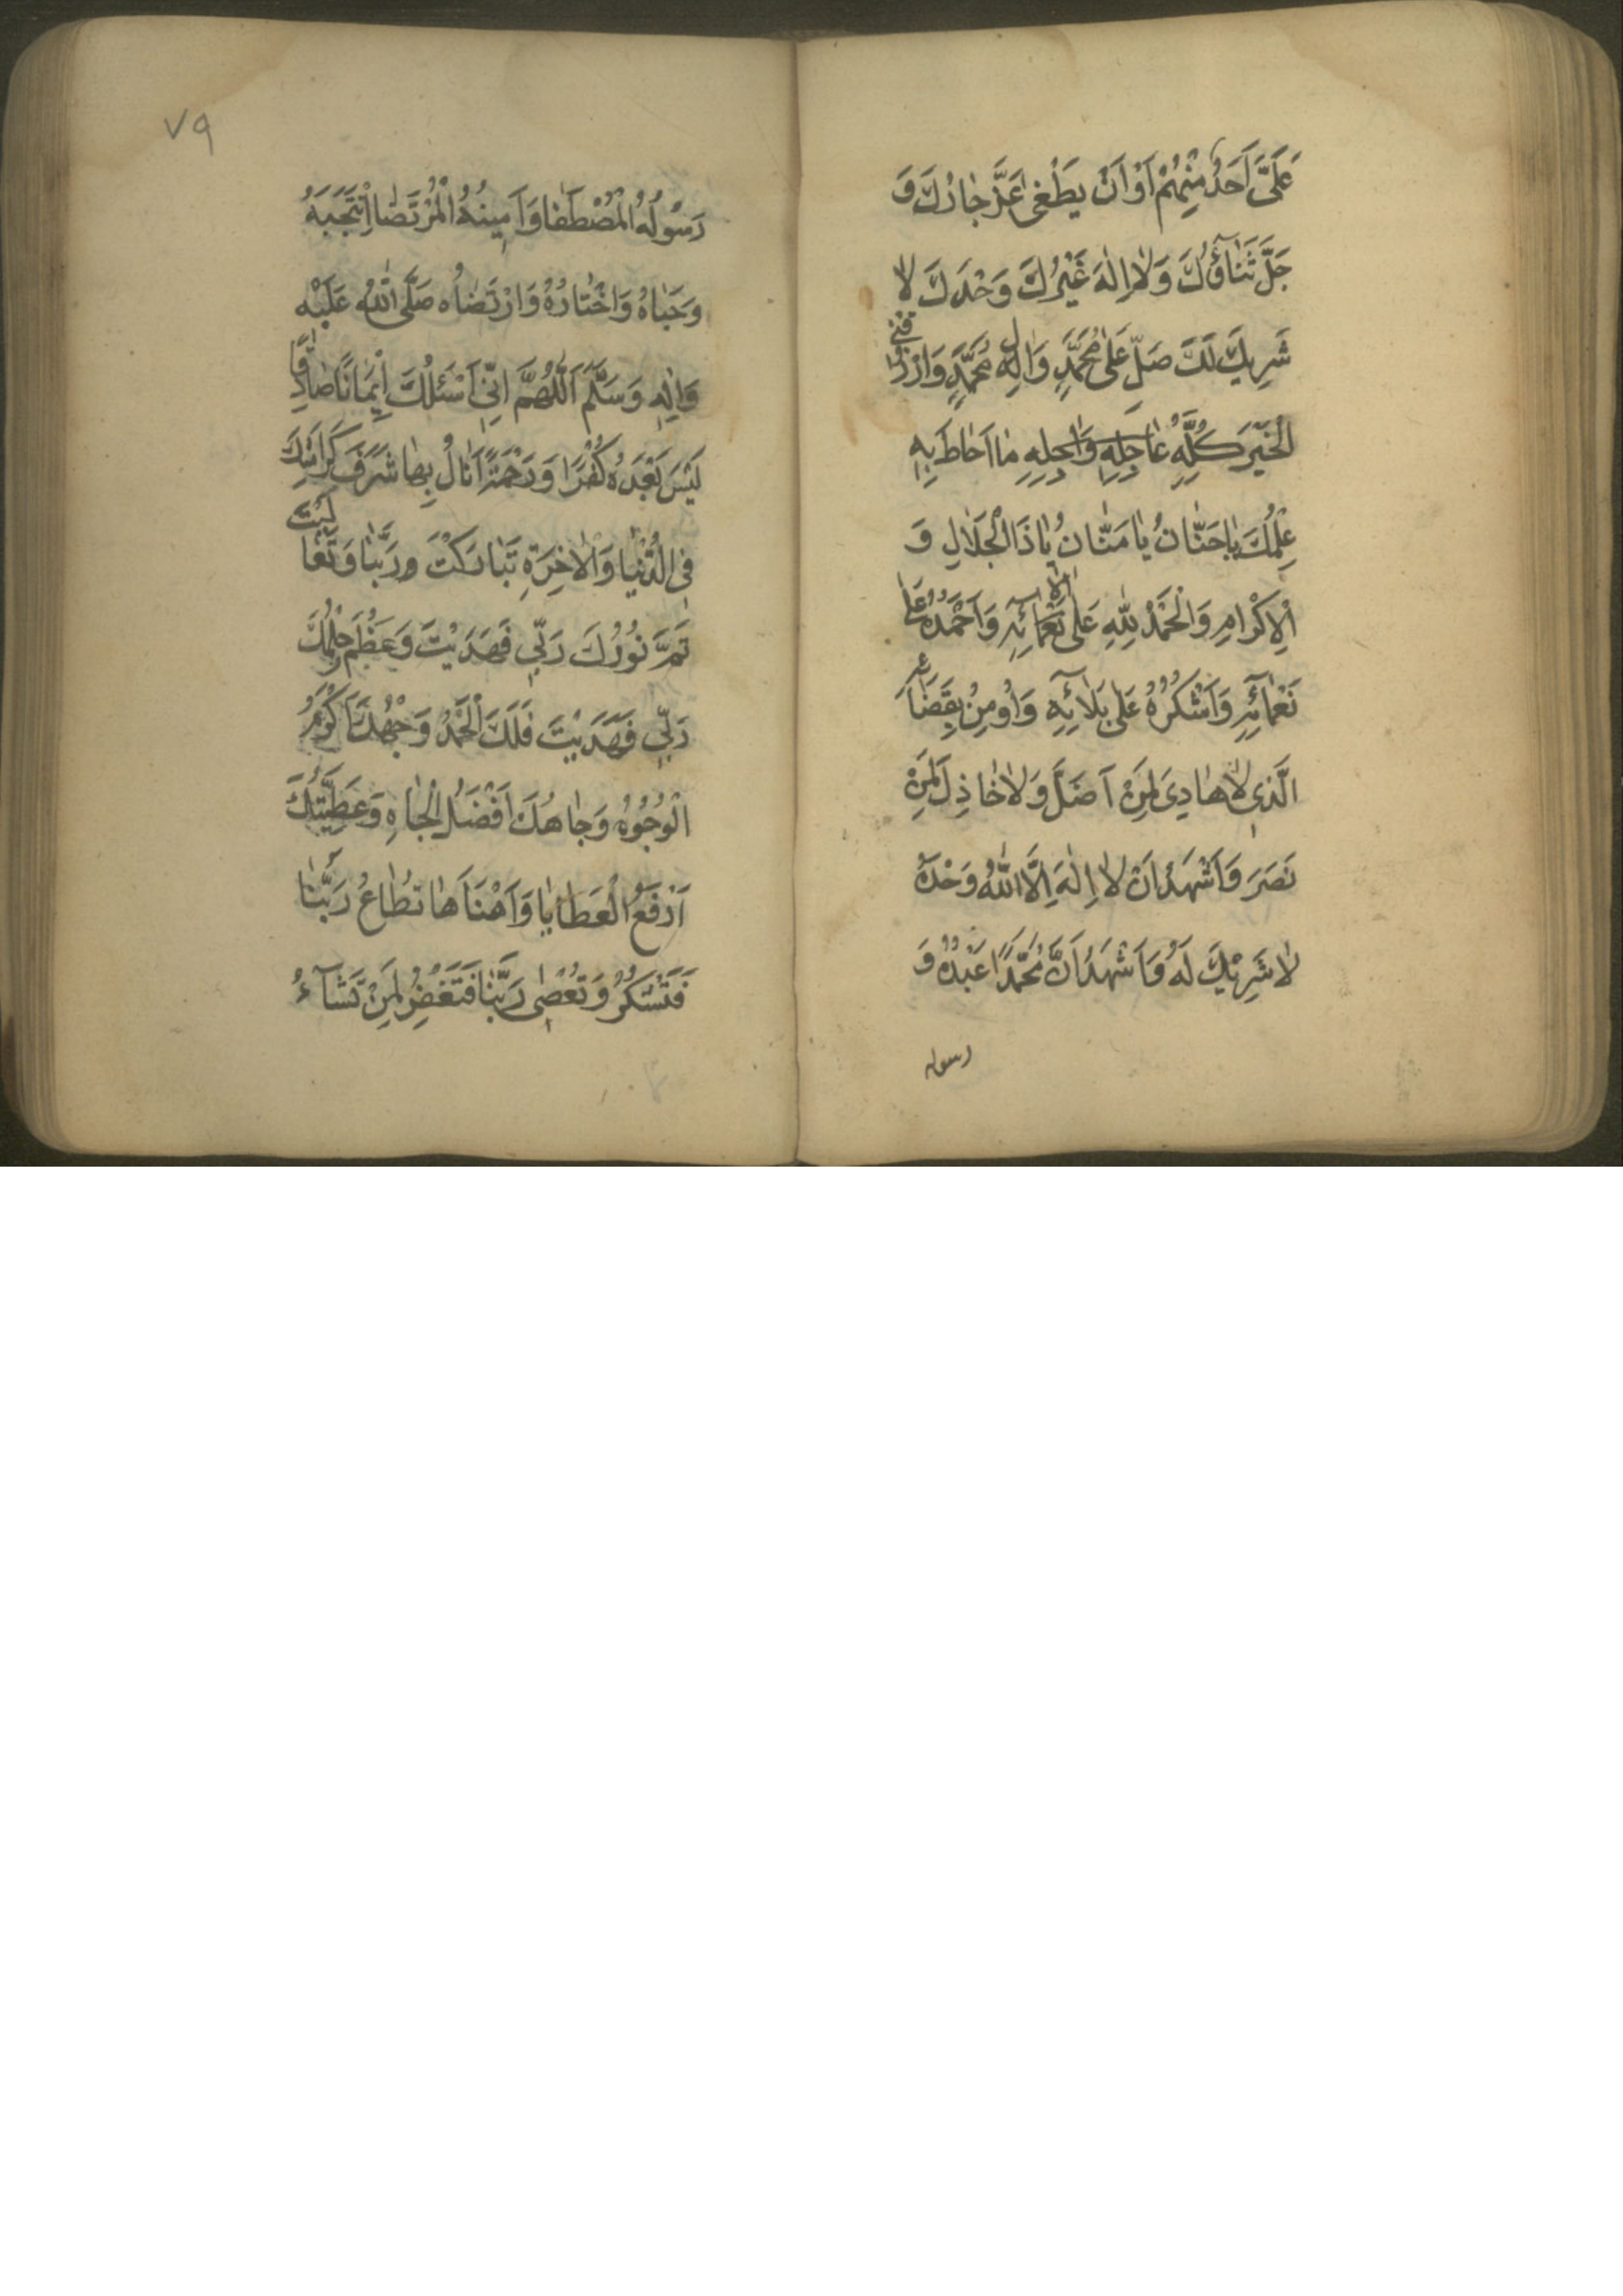 عَلَیَّ اَحَدٌ مِنْهُمْ اَوْ اَنْ یَطْغٰی عَزَّ جٰارُكَ وَ
جَلَّ ثَنٰآؤُكَ وَلٰا اِلٰهَ غَیْرُكَ وَحْدَكَ لٰا
شَرِیكَ لَكَ صَلِّ عَلٰی مُحَمَّدٍ وَاٰلِ مُحَمَّدٍ وَارْزُقْنِی
الْخَیْرَ كُلَّهُ عٰاجِلِهِ وَاٰجِلِهِ مٰا اَحٰاطَ بِهِ
عِلْمُكَ یٰا حَنّٰانُ یٰا مَنّٰانُ یٰا ذَا الْجَلٰالِ وَ
الْاِكْرٰامِ وَالْحَمْدُ لِلّٰهِ عَلٰی نَعْمٰآئِهِ وَاَحْمَدُهُ عَلٰی
نَعْمٰآئِهِ وَاَشْكُرُهُ عَلٰی بَلٰآئِهِ وَاُومِنُ بِقَضٰآئِهِ
الَّذِی لٰا هٰادِیَ لِمَنْ اَضَلَّ وَلٰا خٰاذِلَ لِمَنْ
نَصَرَ وَاَشْهَدُ اَنْ لٰا اِلٰهَ اِلَّا اللّٰهُ وَحْدَهُ
لٰا شَرِیْكَ لَهُ وَاَشْهَدُ اَنَّ مُحَمَّدًا عَبْدُهُ وَ
رسوله
۷۹
رَسُولُهُ الْمُصْطَفٰا وَاَمِینُهُ الْمُرْتَضٰا اِنْتَجَبَهُ
وَحَبٰاهُ وَاخْتٰارَهُ وَارْتَضٰاه صَلَّی اللّٰهُ عَلَیْهِ
وَاٰلِهِ وَسَلَّمَ اَللّٰهُمَّ اِنِّی اَسْئَلُكَ اِیْمٰانًا صٰادِقًا
لَیْسَ بَعْدَهُ كُفْرًا وَرَحْمَةً اَنٰالُ بِهٰا شَرَفَ كَرٰامَتِكَ
فِی الدُّنْیٰا وَالْاٰخِرَةِ تَبٰارَكْتَ وَرَبَّنٰا وَتَعٰالَیْتَ
تَمَّ نُوْرُكَ رَبِّی فَهَدَیْتَ وَعَظُمَ حِلْمُكَ
رَبِّی فَهَدَیْتَ فَلَكَ الْحَمْدُ وَجْهُكَ اَكْرَمُ
الْوُجُوْهِ وَجٰاهُكَ اَفْضَلُ الْجٰاهِ وَعَطِیَّتُكَ
اَرْفَعُ الْعَطٰایٰا وَاَهْنَاَهٰا تُطٰاعُ رَبَّنٰا
فَتَشْكُرُ وَتُعْصٰی رَبَّنٰا فَتَغْفِرُ لِمَنْ تَشٰآءُ